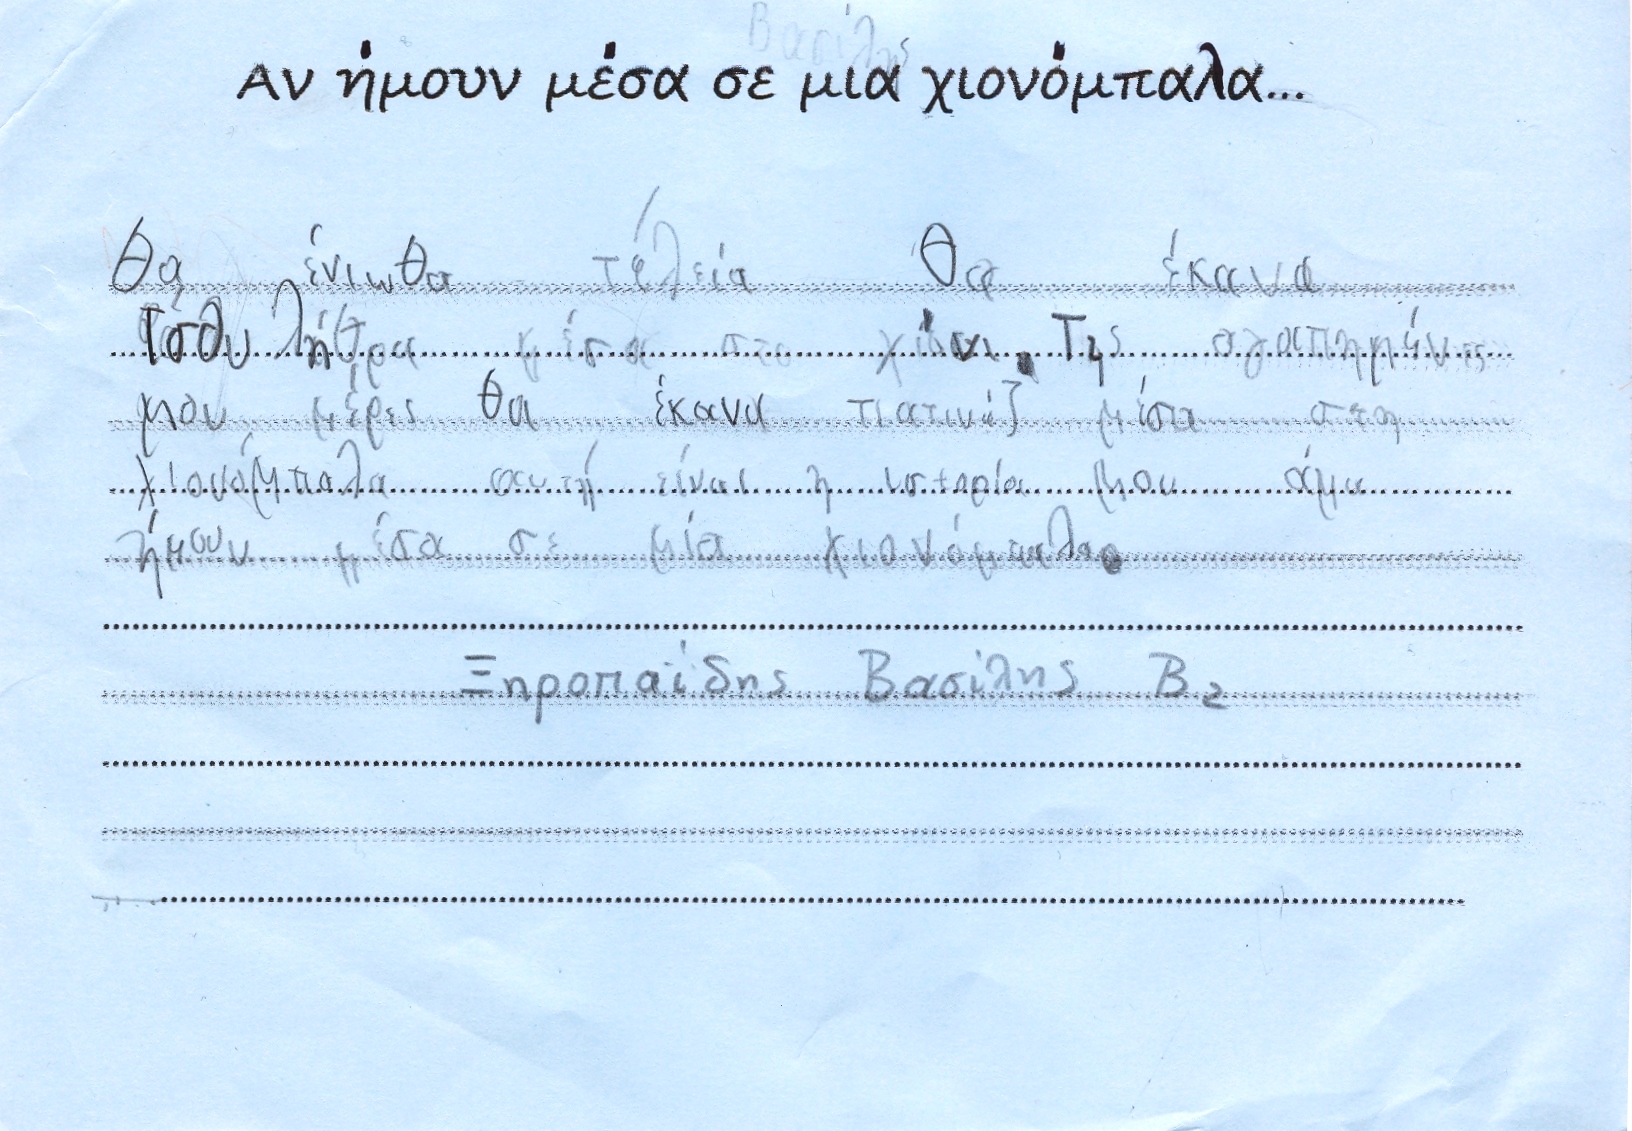 Βασίλης
Αν ήμουν μέσα σε μια χιονόμπαλα...
Θα ένιωθα τέλεια Θα έκανα
τσουλήθρα μέσα στο χιόνι. Τις αγαπημένες
μου μέρες θα έκανα πατινάζ μέσα στη
χιονόμπαλα αυτή είναι η ιστορία μου άμα
ήμουν μέσα σε μία χιονόμπαλα.
Ξηροπαϊδης Βασίλης Β2